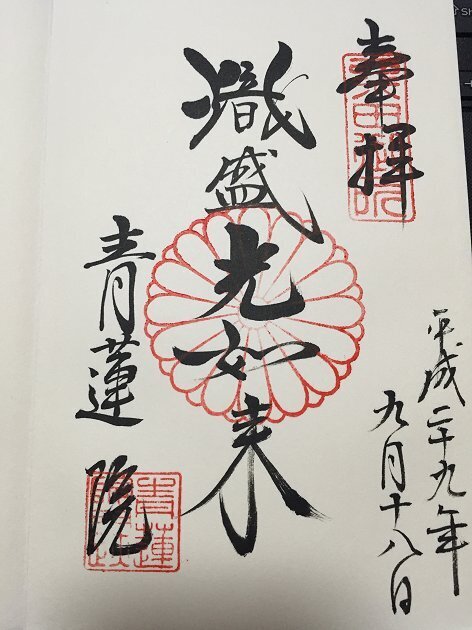 奉拝
平成二十九年
九月十八日
熾盛光如来
青蓮院